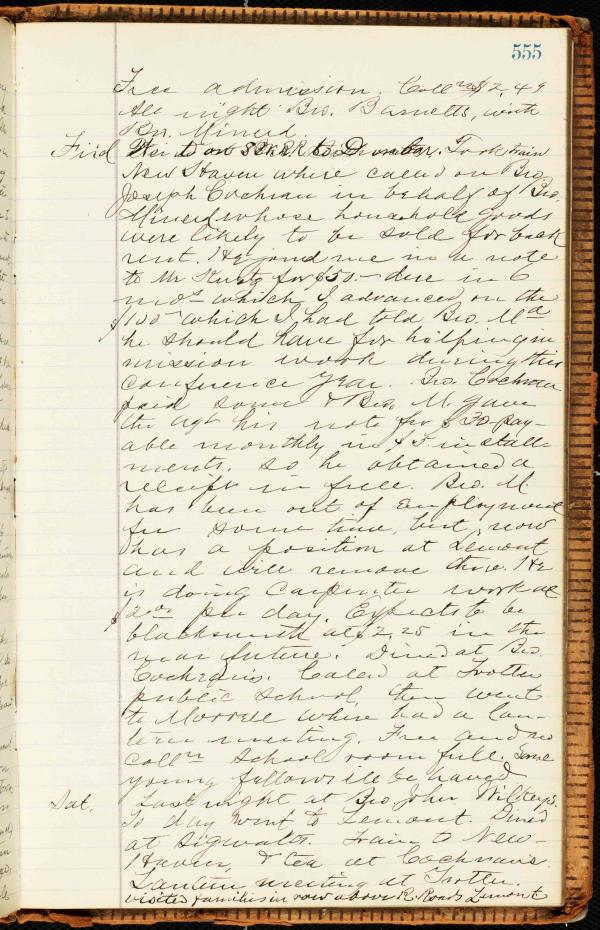 555
Free admission. Colln $2,49
All night Bro. Barnetts, with
Bro. Minerd.
Frid Went on to Dunbar. Took train
New Haven where called on Bro.
Joseph Cochran in behalf of Bro.
Minerd whose household goods
were likely to be sold for back
rent. He joined me in a note
to Mr Kurtz for $50.— due in 6
mos which I advanced on the
$100— which I had told Bro. Md
he should have for helping in
mission work during this
conference year. Bro. Cochran
paid some & Bro. M. gave
the agt his note for $30 pay-
able monthly in $5. install-
ments. So he obtained a
receipt in full. Bro. M
has been out of employment
for some time, but now
has a position at Lemont
and will remove there. He
is doing carpenter work at
$2 00 per day. Expects to be
blacksmith at $2,25 in the
near future. Dined at Bro.
Cochran's. Called at Trotter
public school, then went
to Morrell where had a lan-
tern meeting. Free and no
colln School room full. Some
young fellows ill behaved
Sat. Last night at Bro John Wilkeys.
To day went to Lemont. Dined
at Sigwalts. Train to New-
Haven, & tea at Cochran's.
Lantern meeting at Trotter.
visited families in row above R. Road Lemont